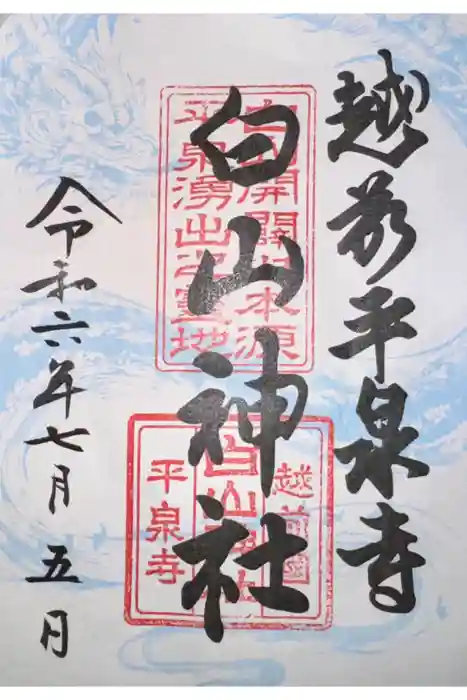 越前平泉寺
白山神社
令和六年七月五日
白山開闢之本源
平泉湧出之霊地
越前国
白山神社
平泉寺